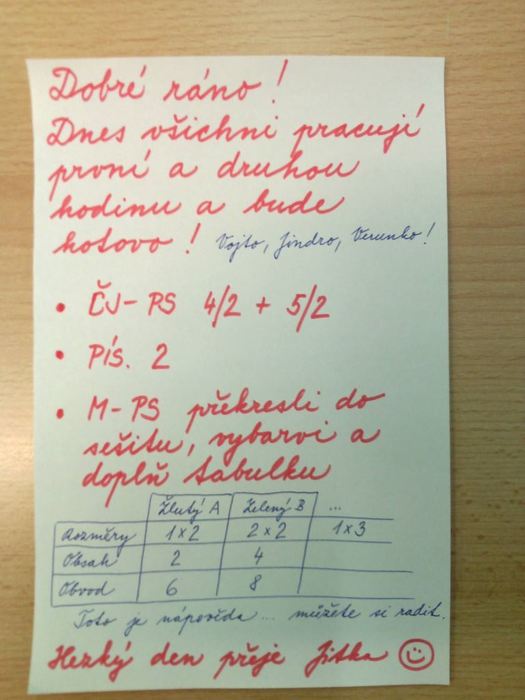 Dobré ráno!
Dnes všichni pracují
první a druhou
hodinu a bude
hotovo! Vojto, Jindro, Verunko!
• ČJ- PS 4/2 + 5/2
• PÍS. 2
• M- PS překresli do
sešitu, vybarvi a
doplň tabulku
Žlutý A Zelený B ...
Rozměry 1x2 2x2 1x3
Obsah 2 4
Obvod 6 8
Toto je nápověda ... můžete si radit.
Hezký den přeje Jitka ☺